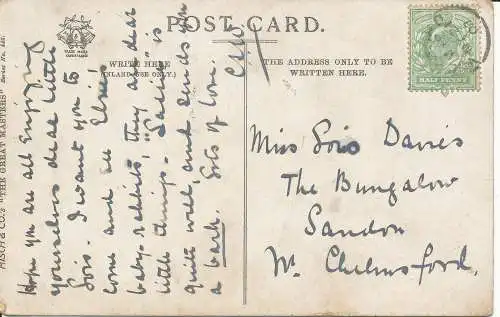 POST CARD.
TRADE MARK
WRITE HERE
(INLAND USE ONLY.)
THE ADDRESS ONLY TO BE
WRITTEN HERE.
HALF PENNY
MISCH & CO.'S "THE GREAT MASTERS"
Hope you are all enjoying
yourselves dear little
Lois. I want you to
come and see Elsie's
baby rabbits, they are dear
little things. "Sallie" is
quite well, and sends you
a bark. Lots of love.
Miss Lois Davies
The Bungalow
Sandon
Nr. Chelmsford.